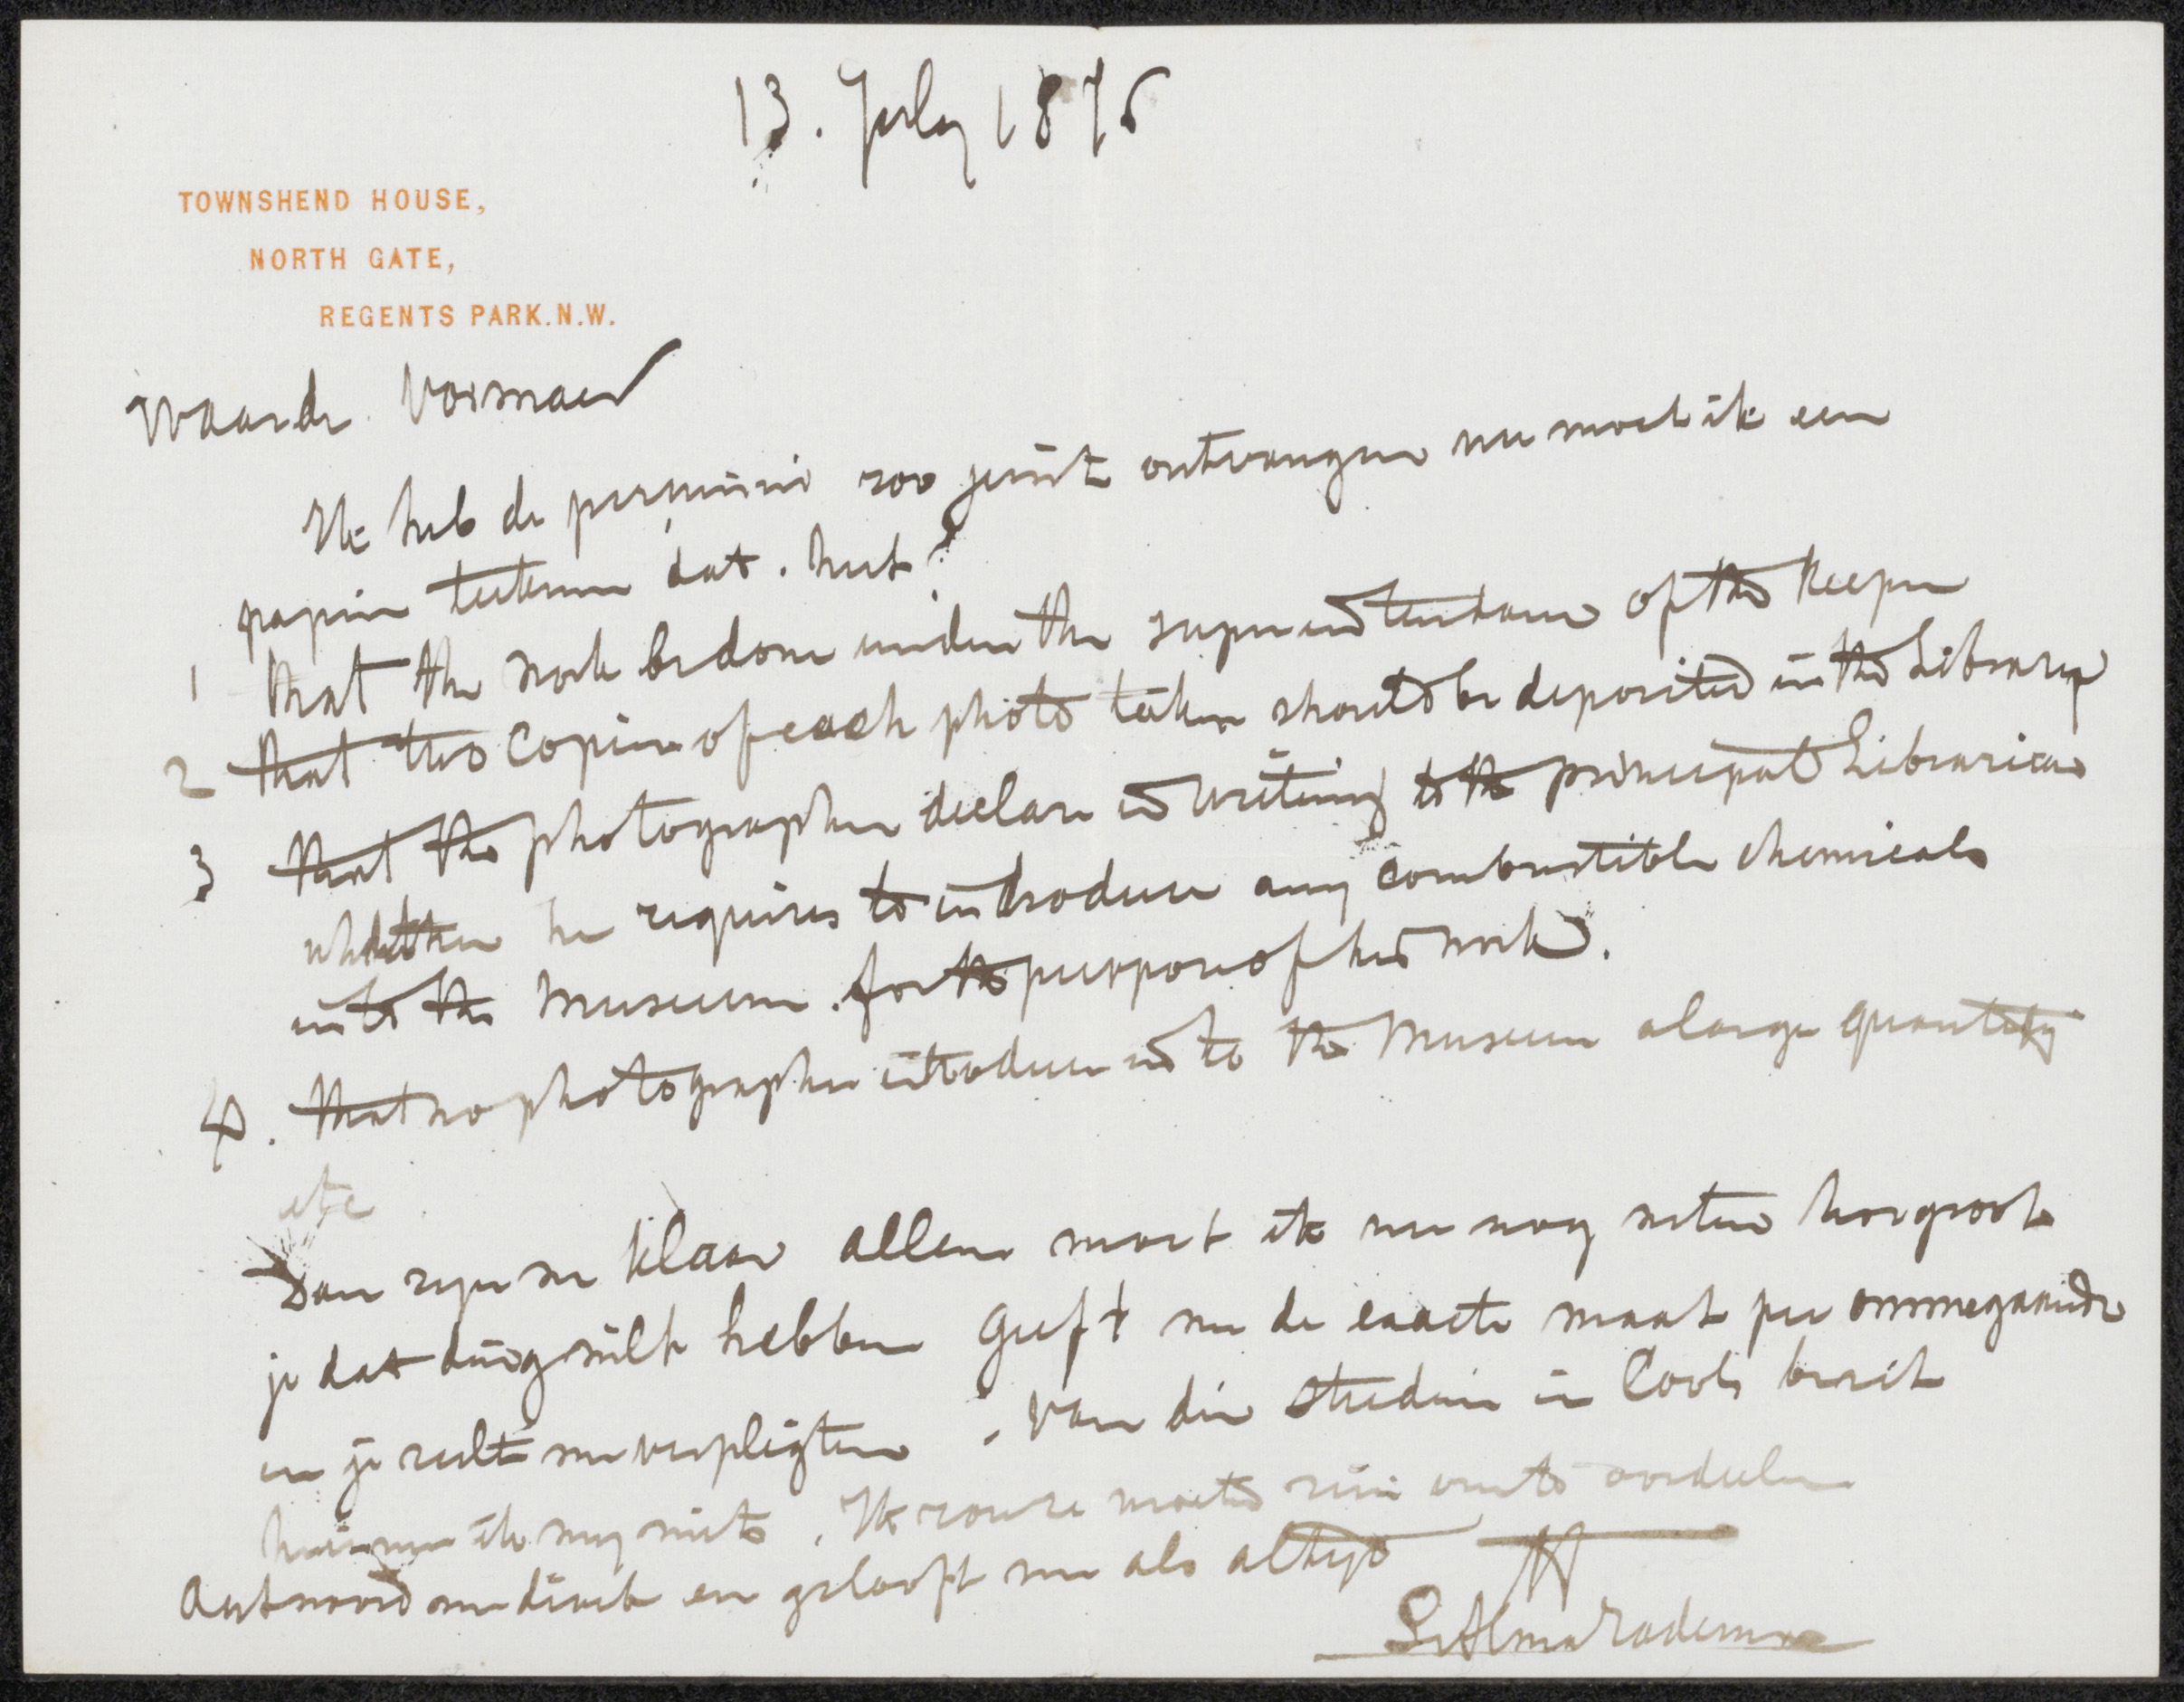 13. July 1876
TOWNSHEND HOUSE,
NORTH GATE,
REGENTS PARK.N.W.
Waarde Vosmaer
Ik heb de permissie zoo juist ontvangen nu moet ik een
papier teekenen dat. luidt
1 that the work be done under the superintendance of the Keeper
2 that two Copies of each photo taken should be deposited in the Library
3 that the photographer declare in writing to the principal Librarian
whether he requires to introduce any combustible chemicals
into the Museum. for the purpose of his work.
4. that no photographer introduce into the Museum a large quantity
etc
Dan zyn we klaar alleen moet ik nu nog weten hoe groot
je dat ding wilt hebben Geeft me de exacte maat per ommegaande
en je zult me verpligten. Van die studie in Cools bezit
herinner ik my niets. Ik zou ze moeten zien om te oordeelen
Antwoord me direct en gelooft me als altyd
L Alma Tadema